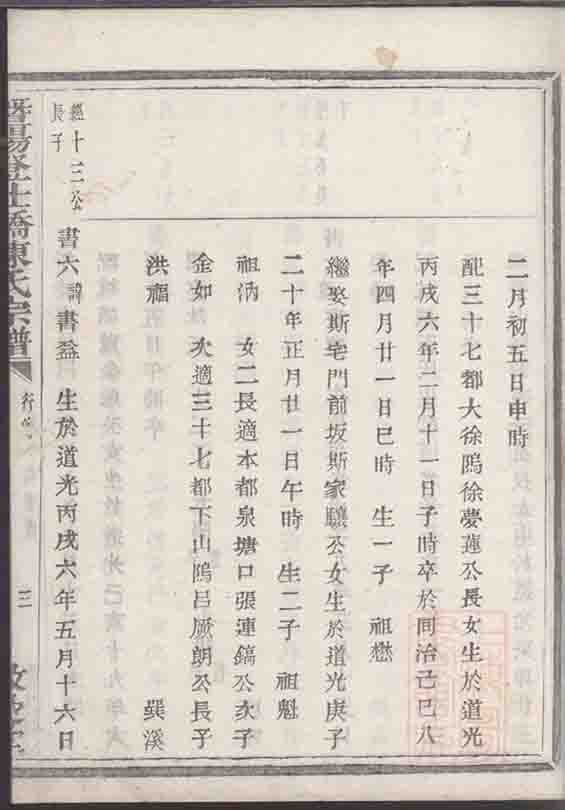 二月初五日申時
配三十七都大徐隖徐夢蓮公長女生於道光
丙戌六年二月十一日子時卒於同治己巳八
年四月廿一日巳時 生一子 祖懋
繼娶斯宅門前坂斯家驤公女生於道光庚子
二十年正月廿一日午時 生二子 祖魁
祖汭 女二長適本都泉塘口張連鎬公次子
金如 次適三十七都下山隖呂厥朗公長子
洪福 巽溪
經十三公
長子
書六諱書益 生於道光丙戌六年五月十六日
暨陽登仕橋陳氏宗譜
三